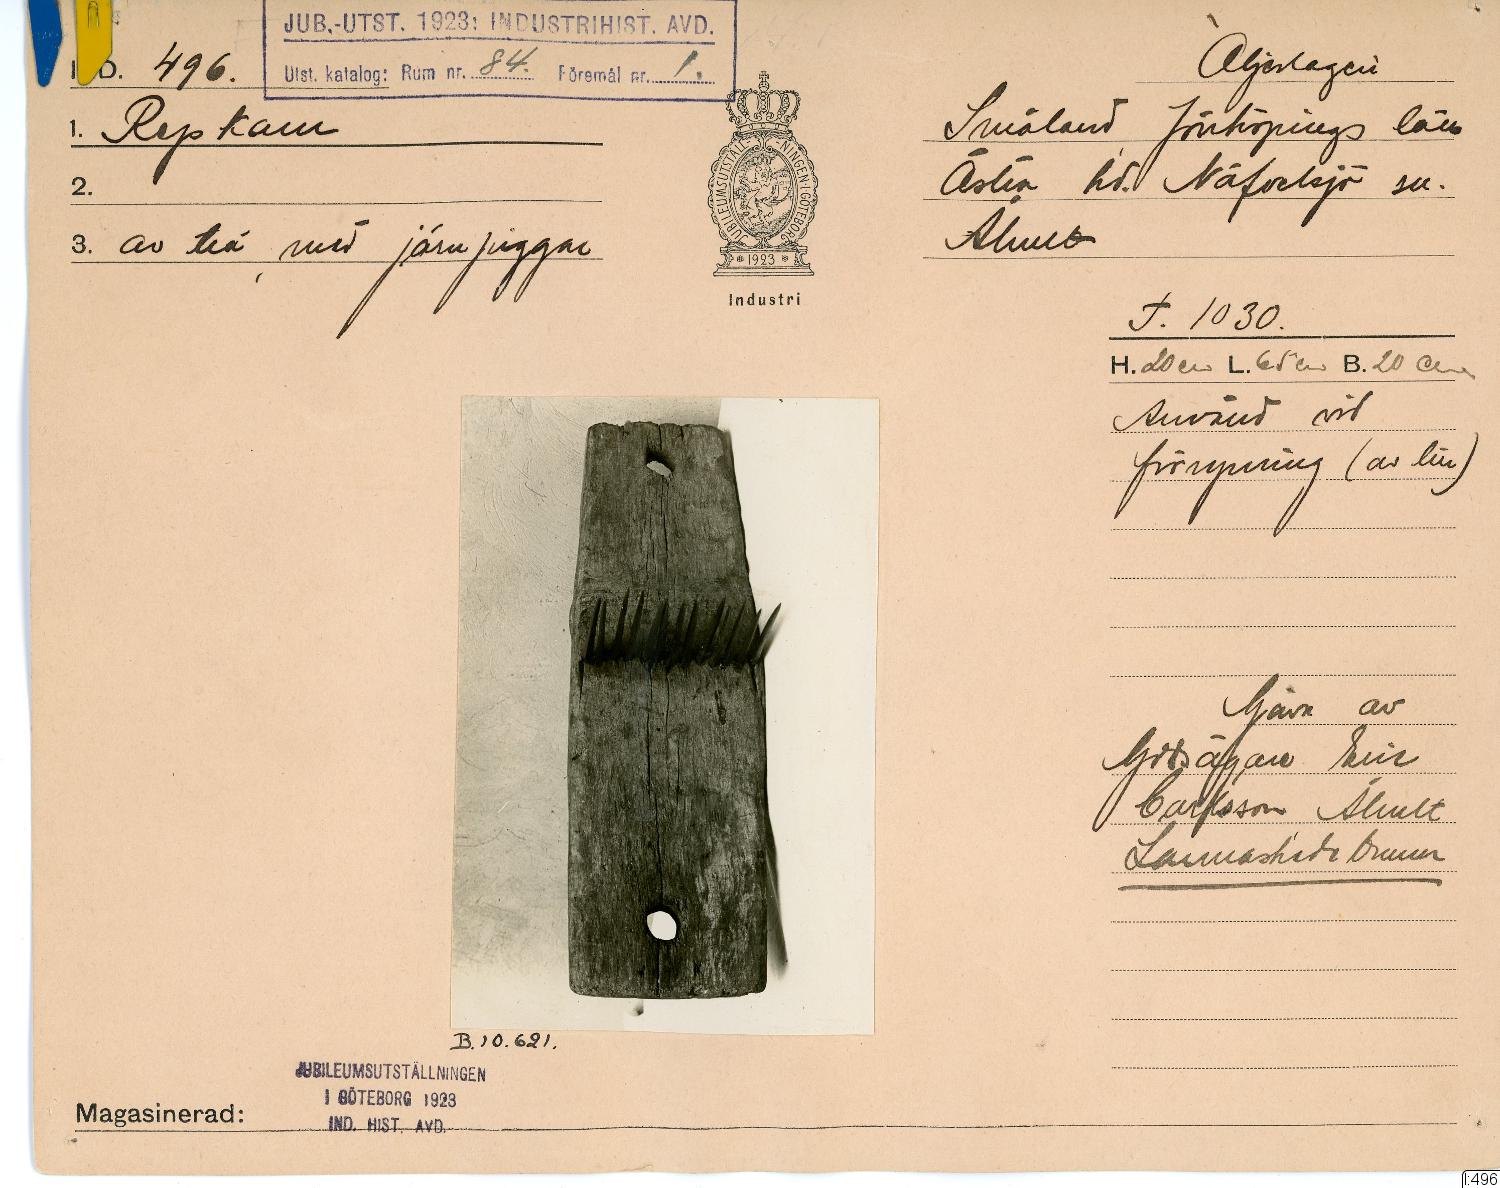 JUB.-UTST. 1923: INDUSTRIHIST. AVD.
Utst. katalog: Rum nr. 84. Föremål nr. 1.
D. 496.
1. Repkam
2.
3. av trä med järnpiggar
JUBILEUMSUTSTÄLLNINGEN I GÖTEBORG
* 1923 *
Industri
Småland Jönköpings län
Östra hd. Näfvelsjö sn.
Ähult
F. 1030.
H. 20 cm L. 65 cm B. 20 cm
Använd vid
frörepning (av lin)
Gåva av
Godsägare
Carlsson Ähult
B.10.621.
JUBILEUMSUTSTÄLLNINGEN
I GÖTEBORG 1923
IND. HIST. AVD.
Magasinerad:
I:496